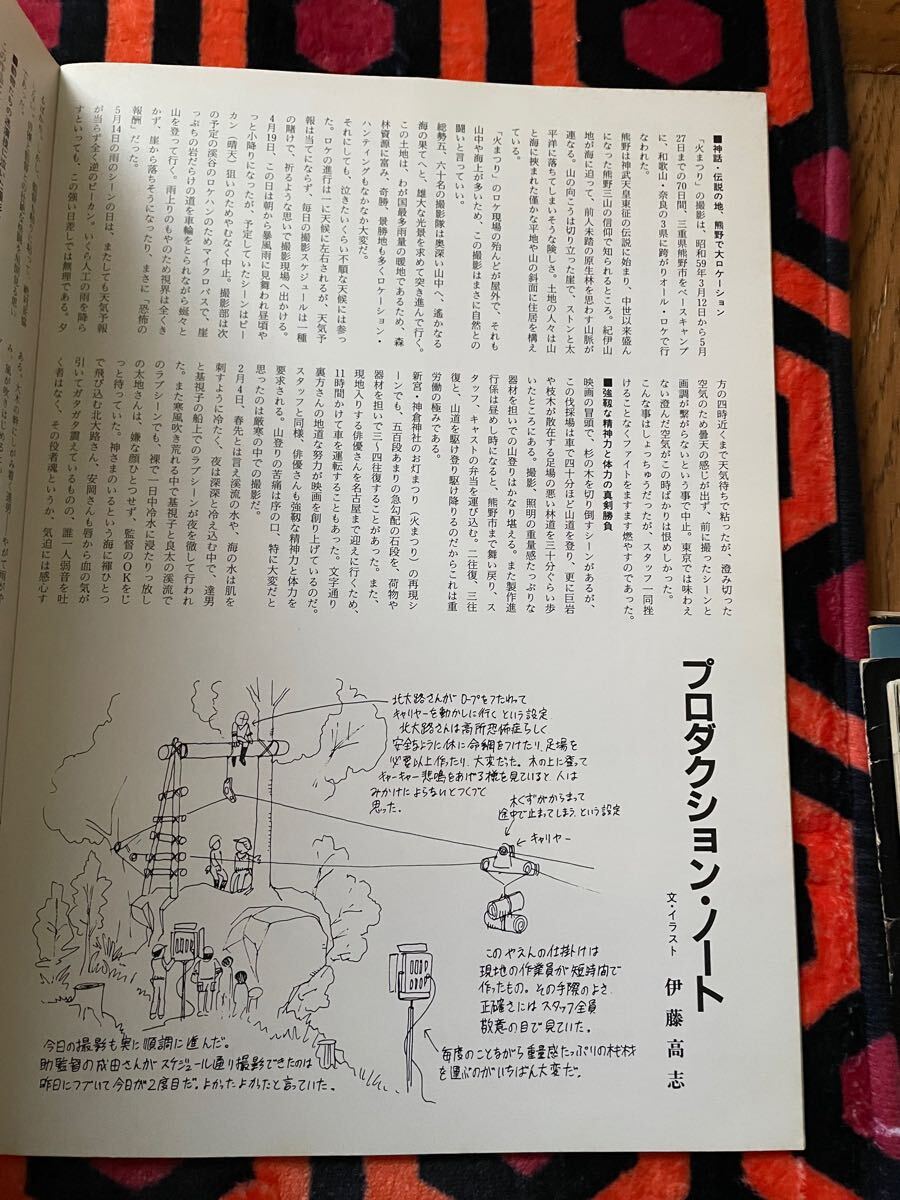 プロダクション・ノート
文・イラスト 伊藤高志
■神話・伝説の地、熊野で大ロケーション
「火まつり」の撮影は、昭和59年3月12日から5月
27日までの70日間、三重県熊野市をベースキャンプ
に、和歌山・奈良の3県に跨がりオール・ロケで行
なわれた。
熊野は神武天皇東征の伝説に始まり、中世以来盛ん
になった熊野三山の信仰で知られるところ。紀伊山
地が海に迫って、前人未踏の原生林を思わす山脈が
連なる。山の向こうは切り立った崖で、ストンと太
平洋に落ちてしまいそうな険しさ。土地の人々は山
と海に挟まれた僅かな平地や山の斜面に住居を構え
ている。
「火まつり」のロケ現場の殆んどが屋外で、それも
山中や海上が多いため、この撮影はまさに自然との
闘いと言っていい。
総勢五、六十名の撮影隊は奥深い山中へ、遙かなる
海の果てへと、雄大な光景を求めて突き進んで行く。
この土地は、わが国最多雨量の暖地であるため、森
林資源に富み、奇勝、景勝地も多くロケーション・
ハンティングもなかなか大変だ。
それにしても、泣きたいくらい不順な天候には参っ
た。ロケの進行は一に天候に左右されるが、天気予
報は当てにならず、毎日の撮影スケジュールは一種
の賭けで、祈るような思いで撮影現場へ出かける。
4月19日、この日は朝から暴風雨に見舞われ昼頃や
っと小降りになったが、予定していたシーンはピー
カン（晴天）狙いのためやむなく中止。撮影部は次
の予定の渓谷のロケハンのためマイクロバスで、崖
っぷちの岩だらけの道を車輪をとられながら蜒々と
山を登って行く。雨上りのもやのため視界は全くき
かず、崖から落ちそうになったり、まさに「恐怖の
報酬」だった。
5月14日の雨のシーンの日は、またしても天気予報
が当らず全く逆のピーカン。いくら人工の雨を降ら
すといっても、この強い日差しでは無理である。夕
方の四時近くまで天気待ちで粘ったが、澄み切った
空気のため曇天の感じが出ず、前に撮ったシーンと
画調が繋がらないという事で中止。東京では味わえ
ない澄んだ空気がこの時ばかりは恨めしかった。
こんな事はしょっちゅうだったが、スタッフ一同挫
けることなくファイトをますます燃やすのであった。
■強靱な精神力と体力の真剣勝負
映画の冒頭で、杉の木を切り倒すシーンがあるが、
この伐採場は車で四十分ほど山道を登り、更に巨岩
や枝木が散在する足場の悪い林道を三十分ぐらい歩
いたところにある。撮影、照明の重量感たっぷりな
器材を担いでの山登りはかなり堪える。また製作進
行係は昼めし時になると、熊野市まで舞い戻り、ス
タッフ、キャストの弁当を運び込む。二往復、三往
復と、山道を駆け登り駆け降りるのだからこれは重
労働の極みである。
新宮・神倉神社のお灯まつり（火まつり）の再現シ
ーンでも、五百段あまりの急勾配の石段を、荷物や
器材を担いで三〜四往復することがあった。また、
現地入りする俳優さんを名古屋まで迎えに行くため、
11時間かけて車を運転することもあった。文字通り
裏方さんの地道な努力が映画を創り上げているのだ。
スタッフと同様、俳優さんも強靱な精神力と体力を
要求される。山登りの苦痛は序の口、特に大変だと
思ったのは厳寒の中での撮影だ。
2月4日、春先とは言え渓流の水や、海の水は肌を
刺すように冷たく、夜は深深と冷え込む中で、達男
と基視子の船上でのラブシーンが夜を徹して行われ
た。また寒風吹き荒れる中で基視子と良太の溪流で
のラブシーンでも、裸で一日中冷水に浸たりっ放し
の太地さんは、嫌な顔ひとつせず、監督のOKをじ
っと待っていた。神さまのいるという海に褌ひとつ
で飛び込む北大路さん、安岡さんも唇から血の気が
引いてガタガタ震えているものの、誰一人弱音を吐
く者はなく、その役者魂というか、気迫には感心す
北大路さんがロープをつたわって
キャリヤーを動かしに行くという設定
北大路さんは高所恐怖症らしく
安全なように体に命綱をつけたり、足場を
必要以上作ったり、大変だった。木の上に登って
キャーキャー悲鳴をあげる様を見ていると、人は
みかけによらないとつくづく
思った。
木くずがからまって
途中で止まってしまう、という設定
キャリヤー
このやえんの仕掛けは
現地の作業員が短時間で
作ったもの。その手際のよさ、
正確さにはスタッフ全員
敬意の目で見ていた。
毎度のことながら重量感たっぷりの機材
を運ぶのがいちばん大変だ。
今日の撮影も実に順調に進んだ。
助監督の成田さんがスケジュール通り撮影できたのは
昨日につづいて今日が2度目だ。よかったよかったと言っていた。